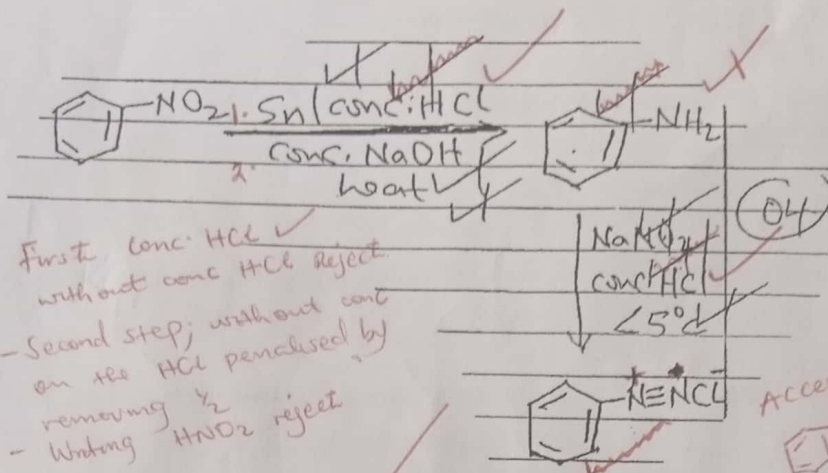 NO2 1. Sn/conc. HCl
NH2
2. conc. NaOH
heat
04
NaNO2
conc HCl
<5°C
First conc. HCl
without conc HCl Reject
- Second step; without conc
on the HCl penalised by
removing 1/2
- Writing HNO2 reject
N≡NCl